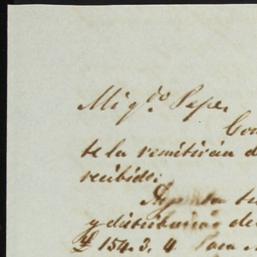 Mi qdo Pepe
Con
te la remitirán d
recibido;
y distribución de
154. 3. 4 Para